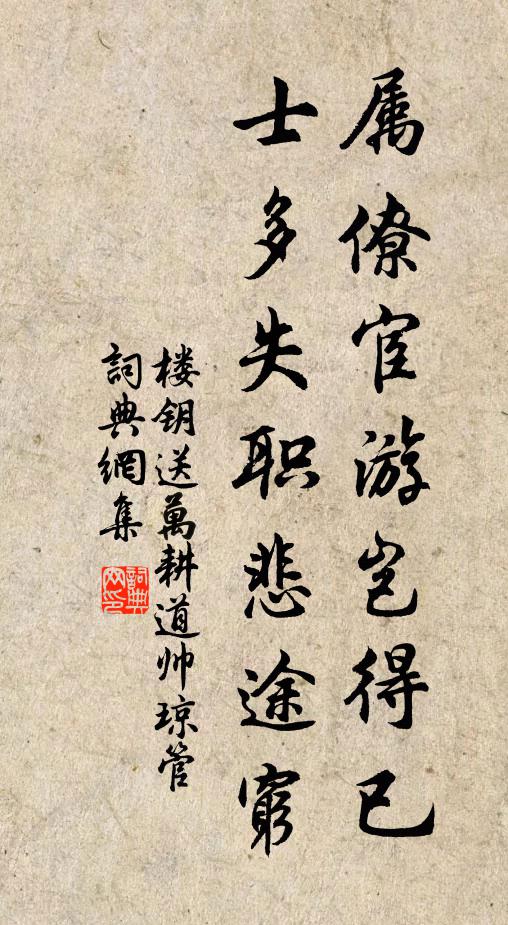 属僚宦游岂得已
士多失职悲途窮
楼钥送萬耕道帅琼管
詞典網集
詞典网印